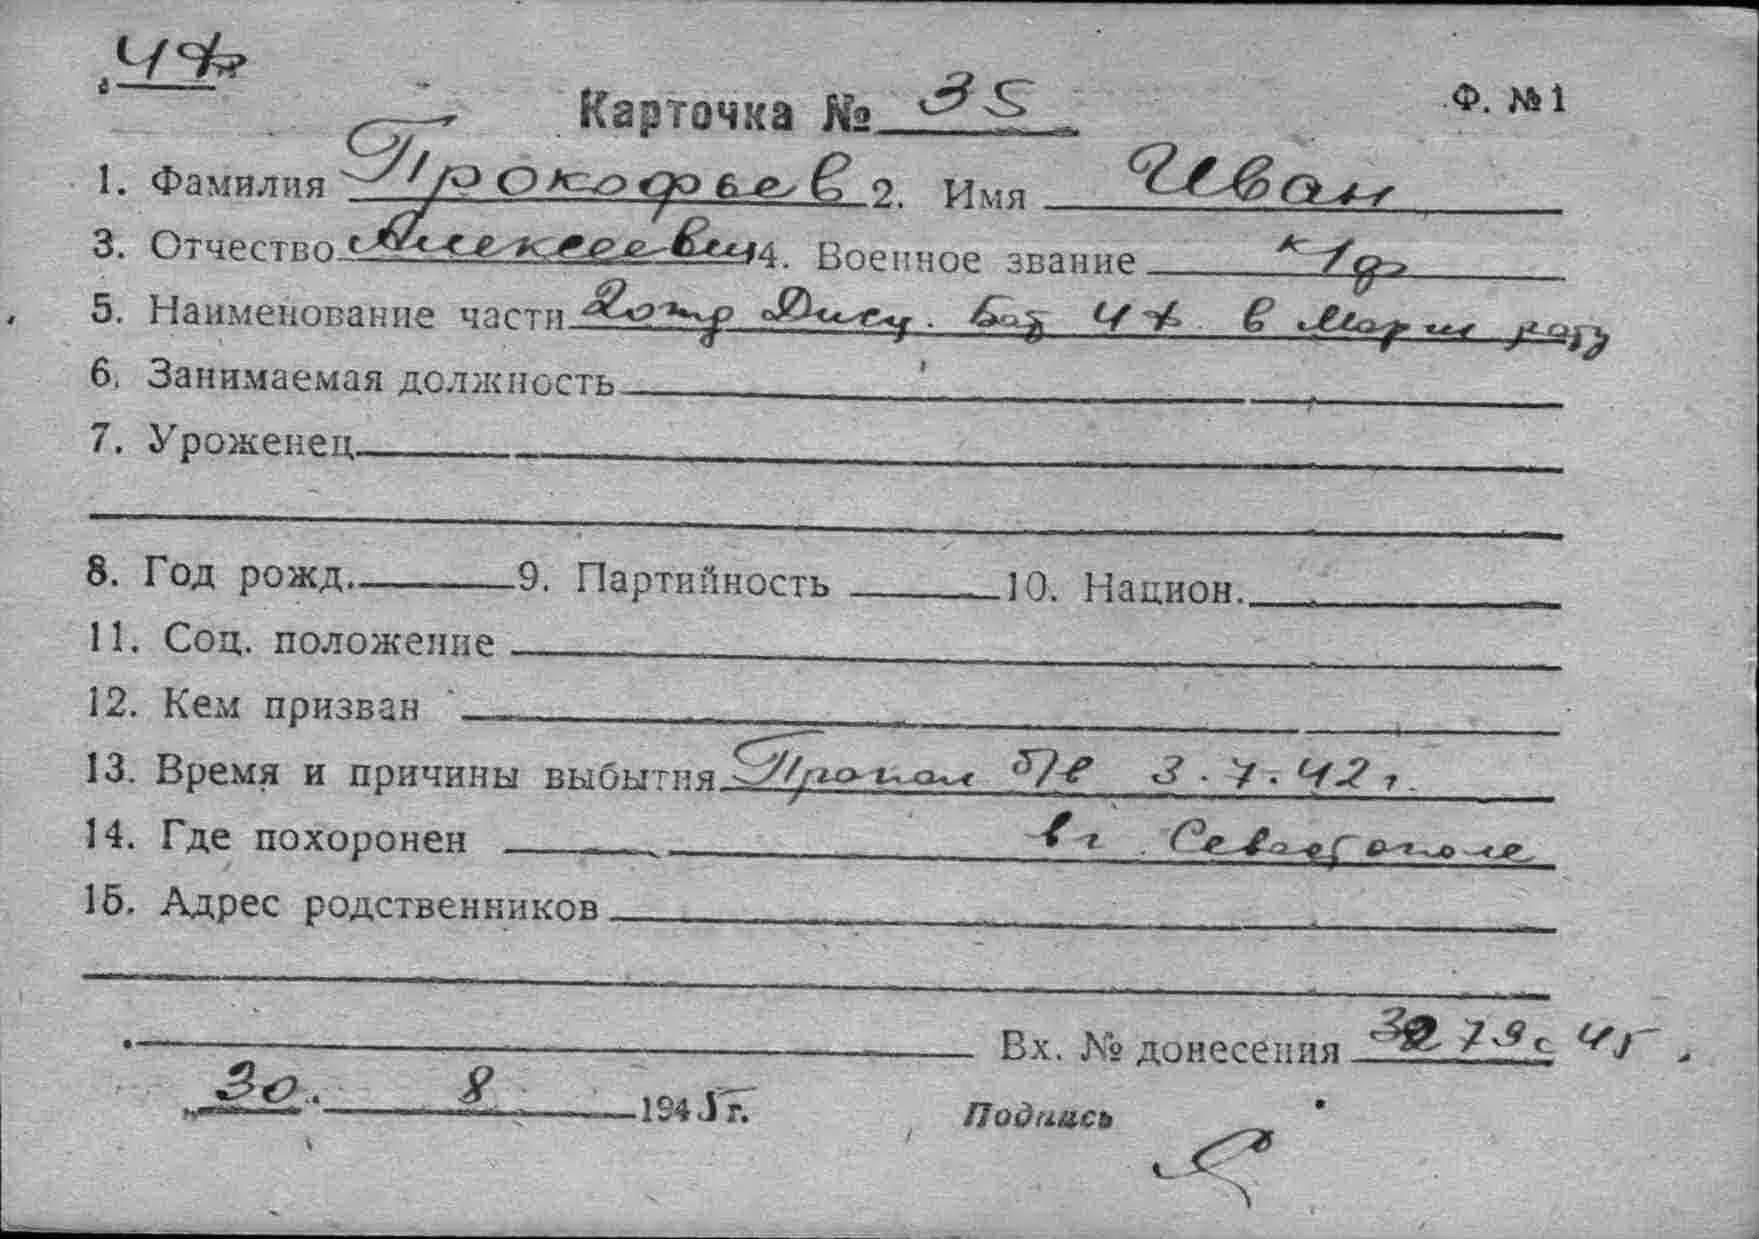 ЧФ
Карточка № 35
Ф. №1
1. Фамилия Прокофьев 2. Имя Иван
3. Отчество Алексеевич 4. Военное звание к/ф
5. Наименование части Дисц. Бат ЧФ в Морш роту
6. Занимаемая должность
7. Уроженец
8. Год рожд. 9. Партийность 10. Национ.
11. Соц. положение
12. Кем призван
13. Время и причины выбытия Пропал б/в 3.7.42г.
14. Где похоронен в г. Севастополе
15. Адрес родственников
Вх. № донесения 45
30. 8 1945 г.
Подпись